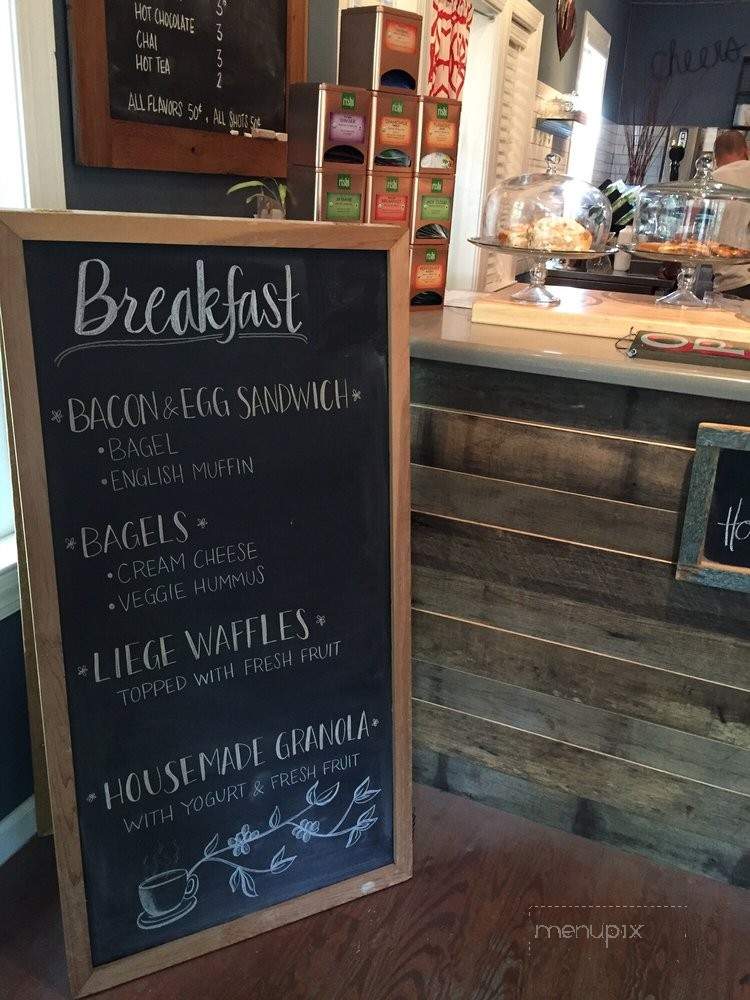 HOT CHOCOLATE 3
CHAI 3
HOT TEA 3
2
ALL FLAVORS 50¢, ALL SHOTS 50¢
cheers
rishi
rishi
rishi
rishi
rishi
rishi
rishi
Breakfast
BACON & EGG SANDWICH
• BAGEL
• ENGLISH MUFFIN
BAGELS
• CREAM CHEESE
• VEGGIE HUMMUS
LIEGE WAFFLES
TOPPED WITH FRESH FRUIT
HOUSEMADE GRANOLA
WITH YOGURT & FRESH FRUIT
menupix